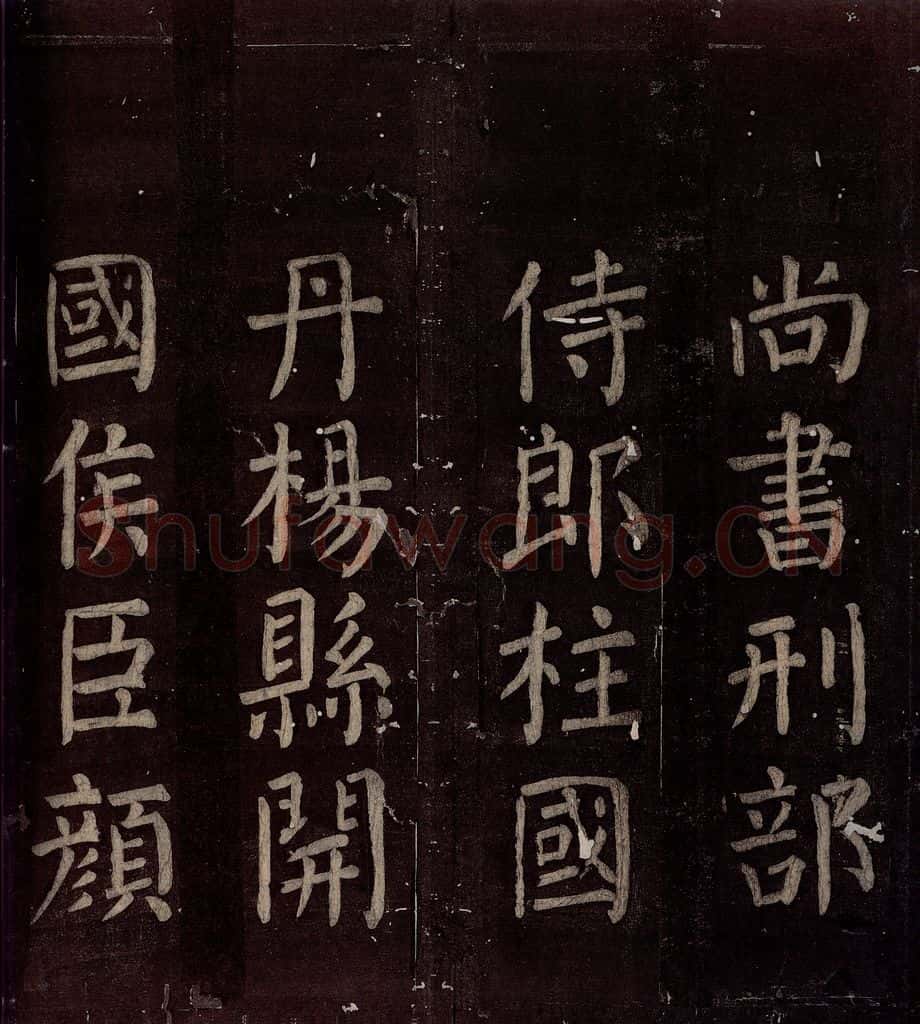 尚書刑部
侍郎柱國
丹楊縣開
國侯臣顏
shufawang.cn